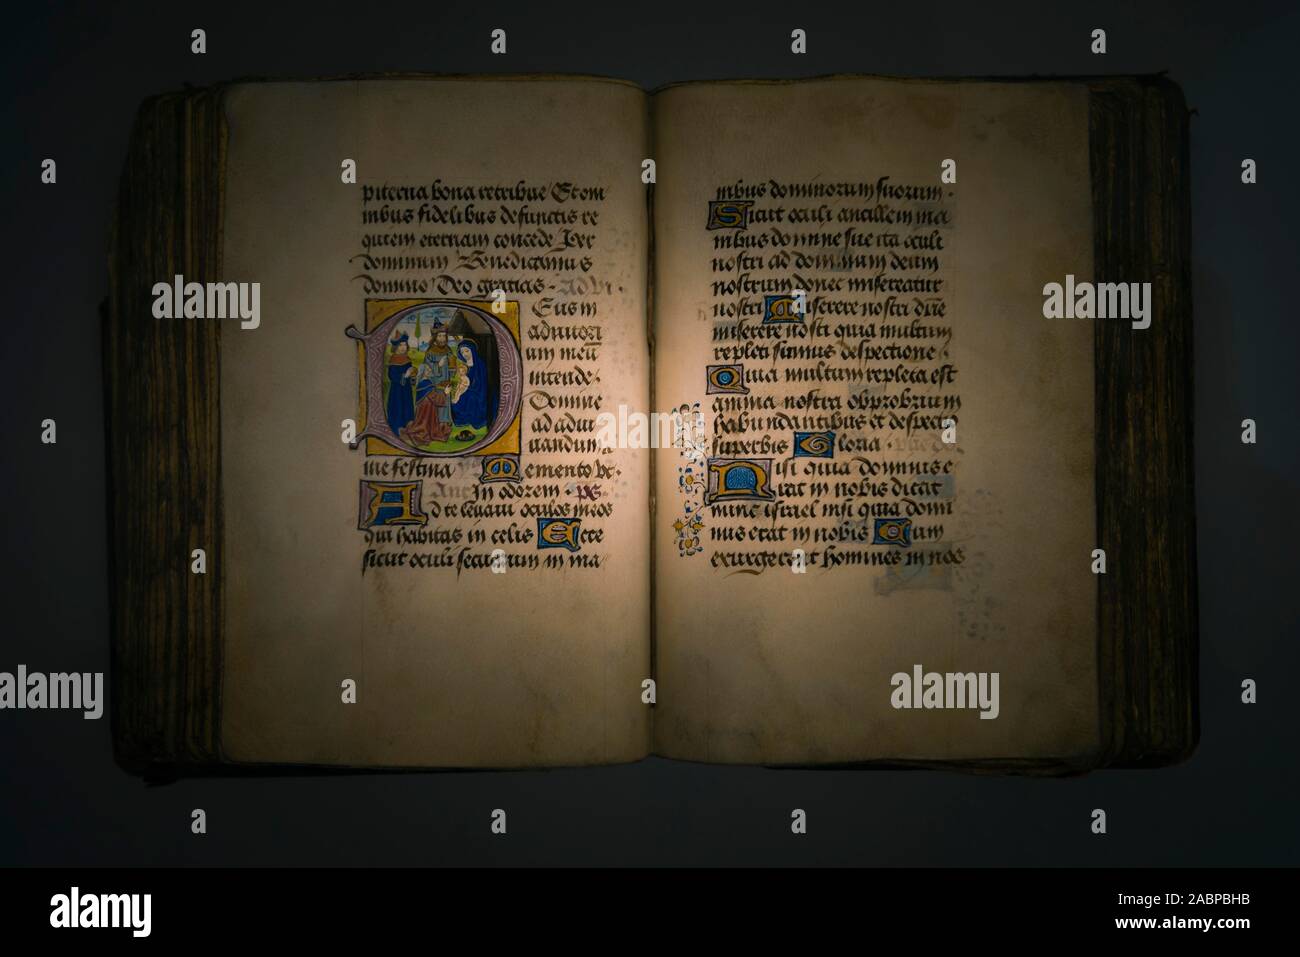 piterna bona retribue Et om
nibus fidelibus defunctis re
quiem eternam concede Per
dominum Benedicamus
domino Deo gratias · ad vi ·
Deus in
adiutori
um meu̅
intende ·
Domine
ad adiu
uandum
me festina Memento vc ·
Anc In odorem · ps
Ad te leuaui oculos meos
qui habitas in celis Ecce
sicut oculi seruorum in ma
nibus dominorum suorum ·
Sicut oculi ancille in ma
nibus domine sue ita oculi
nostri ad dominum deum
nostrum donec misereatur
nostri Miserere nostri dn̅e
miserere nostri quia multum
repleti sumus despectione ·
Quia multum repleta est
anima nostra obprobrium
habundantibus et despectio
superbis Gloria ·
Nisi quia dominus e
rat in nobis dicat
nunc israel nisi quia domi
nus erat in nobis Cum
exurgerent homines in nos
alamy
Image ID: 2ABPBHB
www.alamy.com